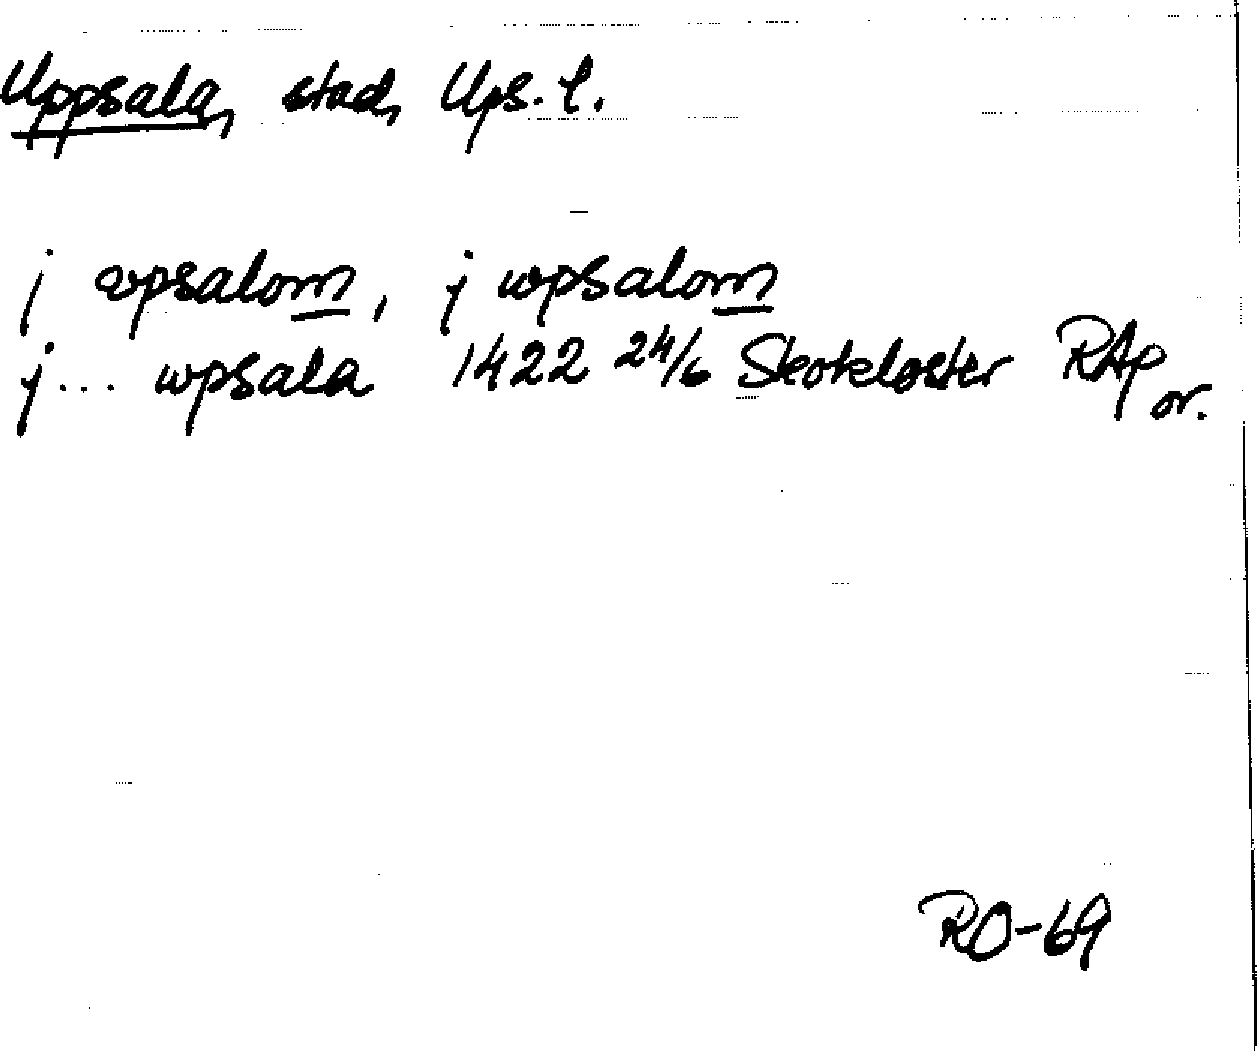 Uppsala, stad, Ups. l.
j vpsalom, j wpsalom
j... wpsala 1422 24/6 Skokloster RAp or.
RO-69